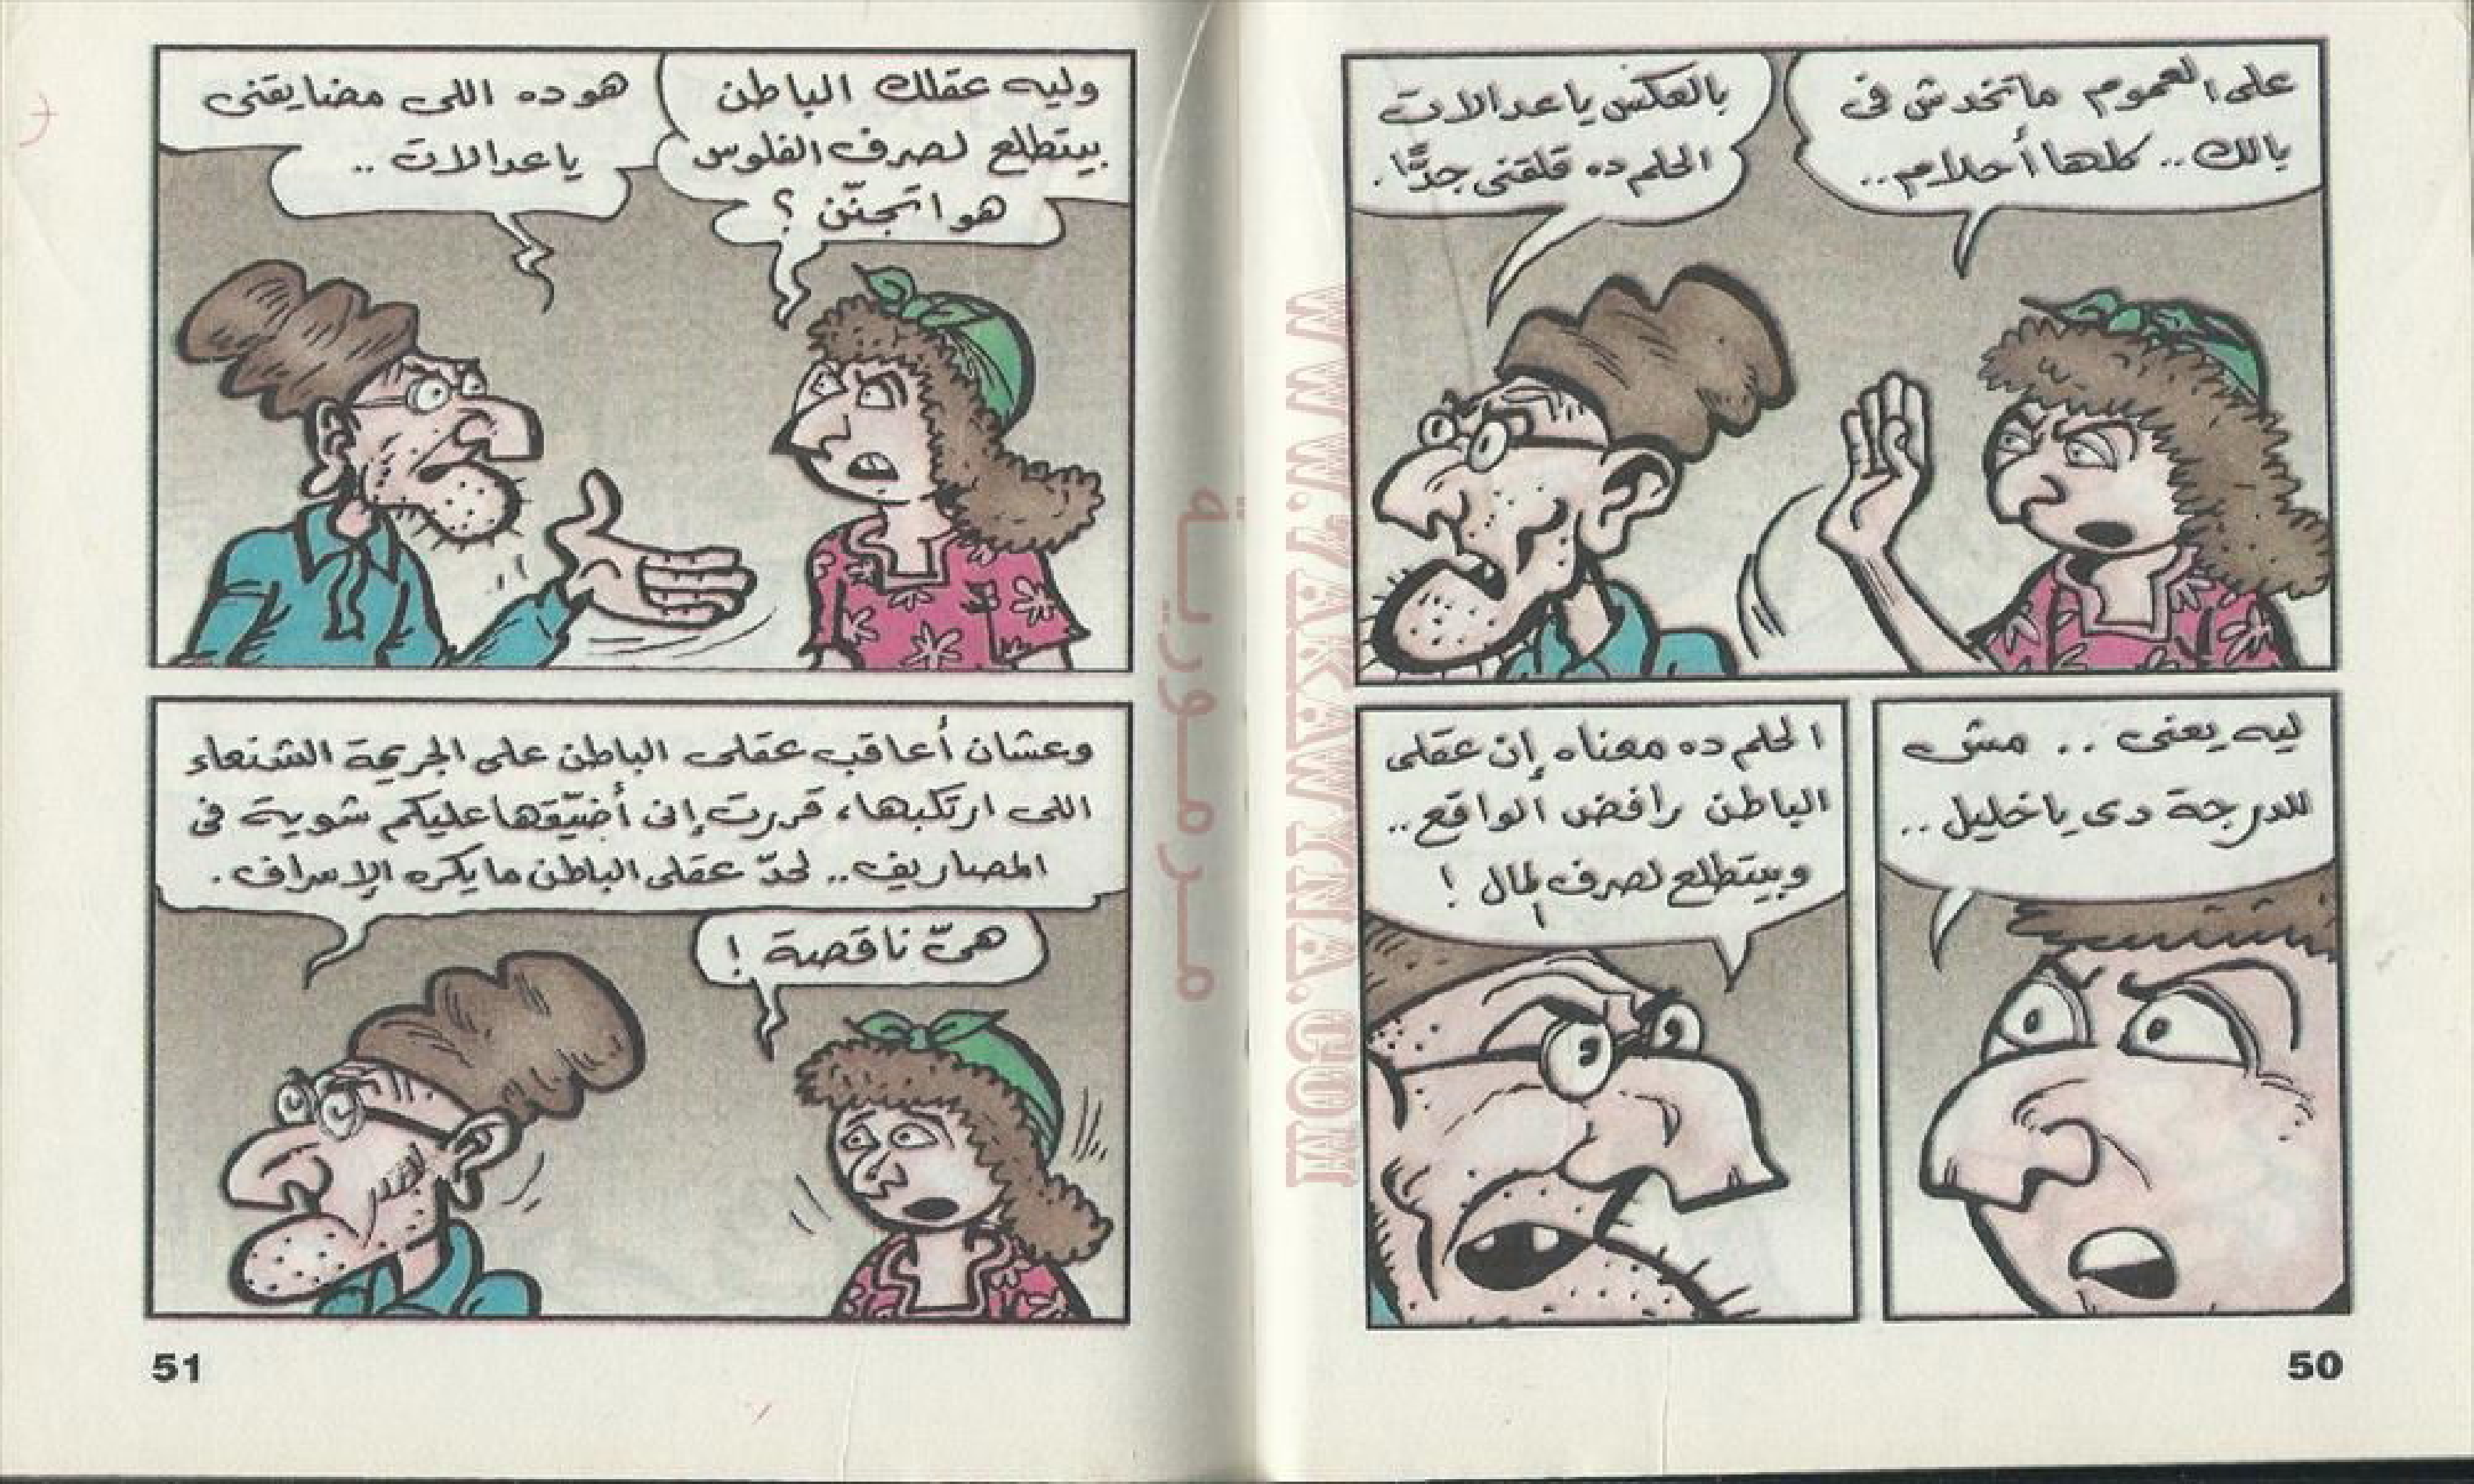 على العموم ماتخدش فى
بالك.. كلها أحلام..
بالعكس يا عدالات
الحلم ده قلقنى جدًّا.
ليه يعنى .. مش
للدرجة دى يا خليل ..
الحلم ده معناه إن عقلى
الباطن رافض الواقع..
وبيتطلع لصرف المال !
50
وليه عقلك الباطن
بيتطلع لصرف الفلوس
هو اتجنّن ؟
هو ده اللى مضايقنى
يا عدالات ..
وعشان أعاقب عقلى الباطن على الجريمة الشنعاء
اللى ارتكبها، قررت إنى أضيّقها عليكم شوية فى
المصاريف.. لحدّ عقلى الباطن ما يكره الإسراف.
هىّ ناقصة !
51
مرمورية